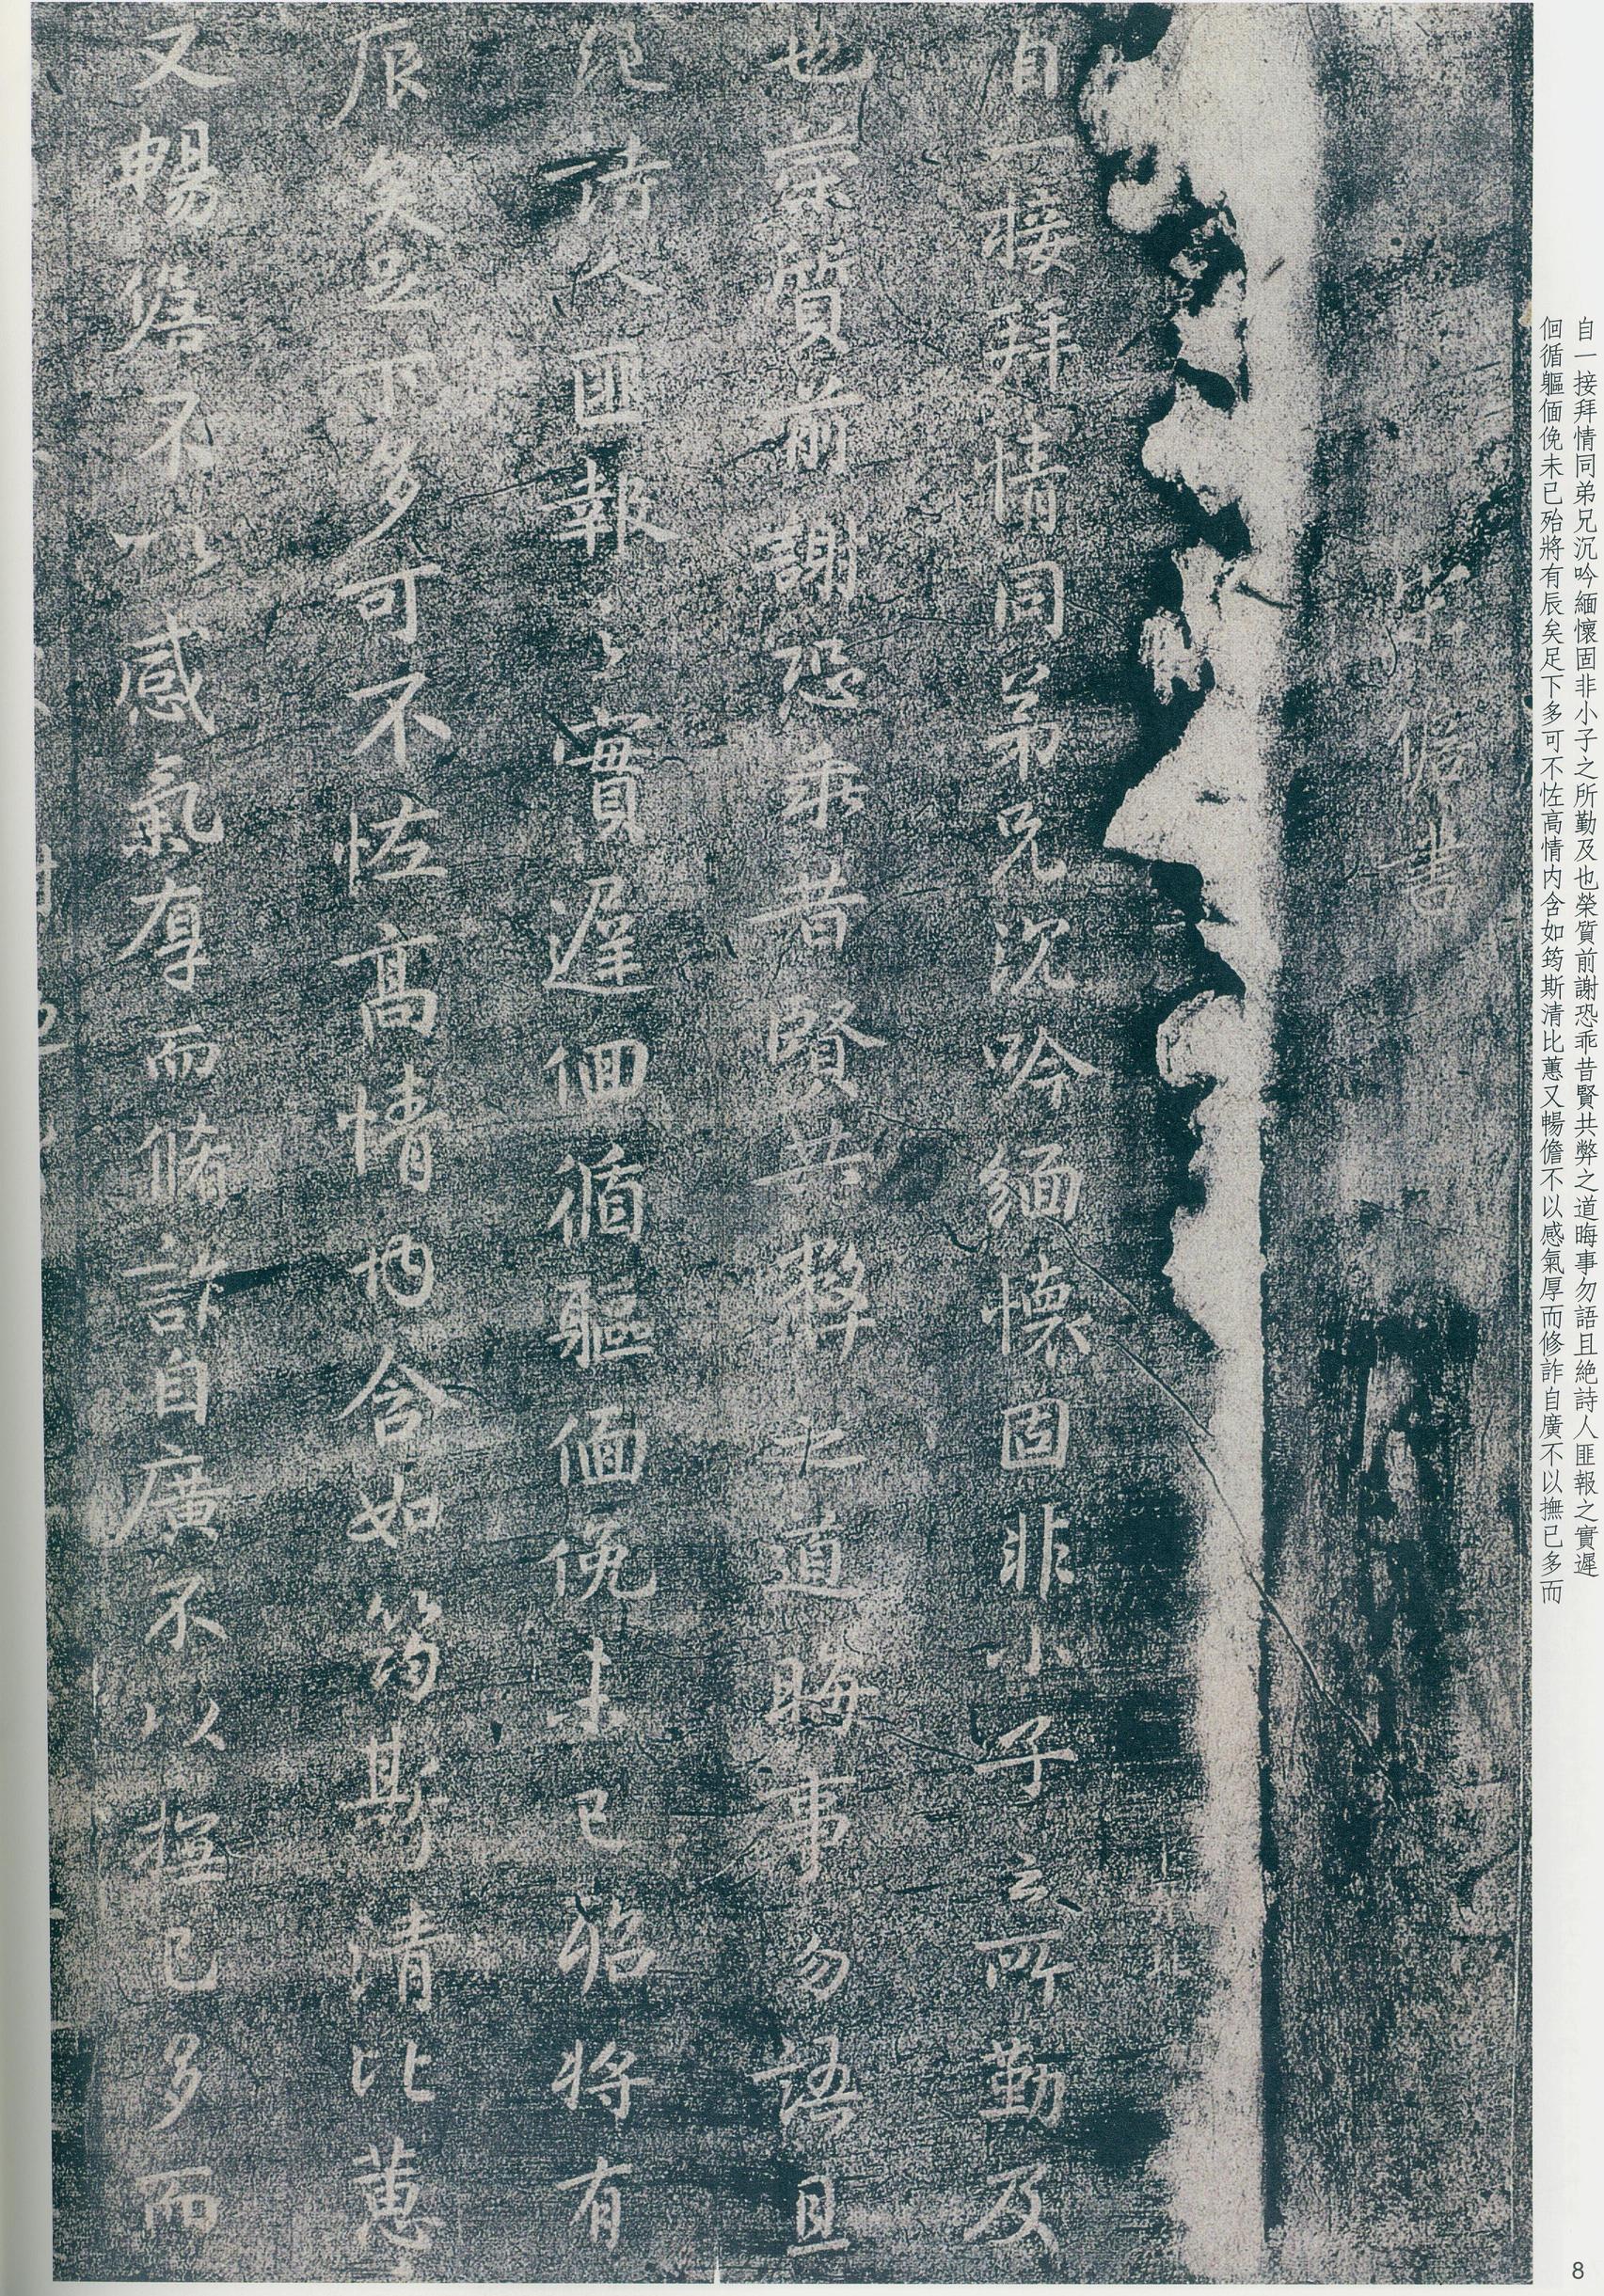 自一接拜情同弟兄沉吟緬懷固非小子之所勤及也榮質前謝恐乖昔賢共弊之道晦事勿語且絶詩人匪報之實遲
佪循軀偭俛未已殆將有辰矣足下多可不怪高情内含如筠斯清比蕙又暢儋不以感氣厚而修詐自廣不以撫已多而
儋書
自一接拜情同弟兄沉吟緬懷固非小子之所勤及
也榮質前謝恐乖昔賢共弊之道晦事勿語且
絶詩人匪報之實遲佪循軀偭俛未已殆將有
辰矣足下多可不怪高情内含如筠斯清比蕙
又暢儋不以感氣厚而脩詐自廣不以撫已多而
8